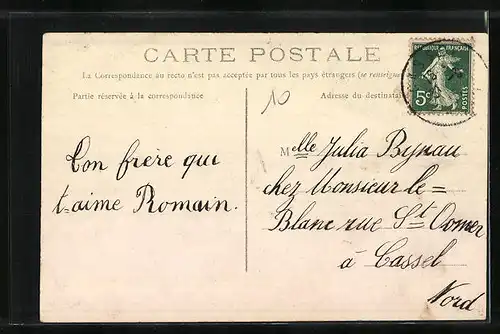 CARTE POSTALE
La Correspondance au recto n'est pas acceptée par tous les pays étrangers (se renseigner
Partie réservée à la correspondance
Adresse du destinata
10
REPUBLIQUE FRANÇAISE
5c
POSTES
Ton frère qui
t-aime Romain.
Melle Julia Bynau
chez Monsieur le=
Blanc rue St Oomer
à Cassel
Nord